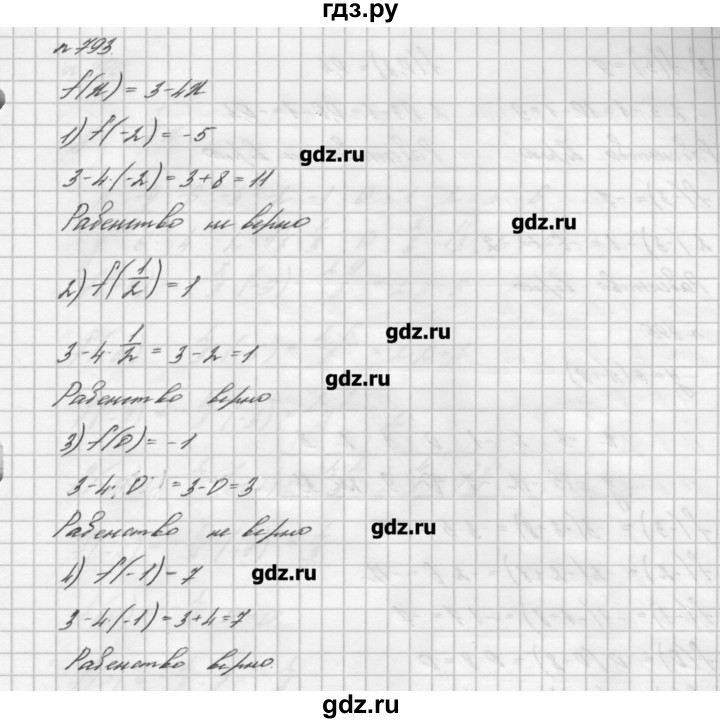 гдз.ру
n 793.
f(x) = 3-4x
1) f(-2) = -5
gdz.ru
3-4·(-2) = 3+8 = 11
Равенство не верно
gdz.ru
2) f(1/2) = 1
gdz.ru
3-4·1/2 = 3-2 = 1
gdz.ru
Равенство верно
3) f(0) = -1
3-4·0 = 3-0 = 3
Равенство не верно
gdz.ru
4) f(-1) - 7
gdz.ru
3-4·(-1) = 3+4 = 7
Равенство верно.
gdz.ru